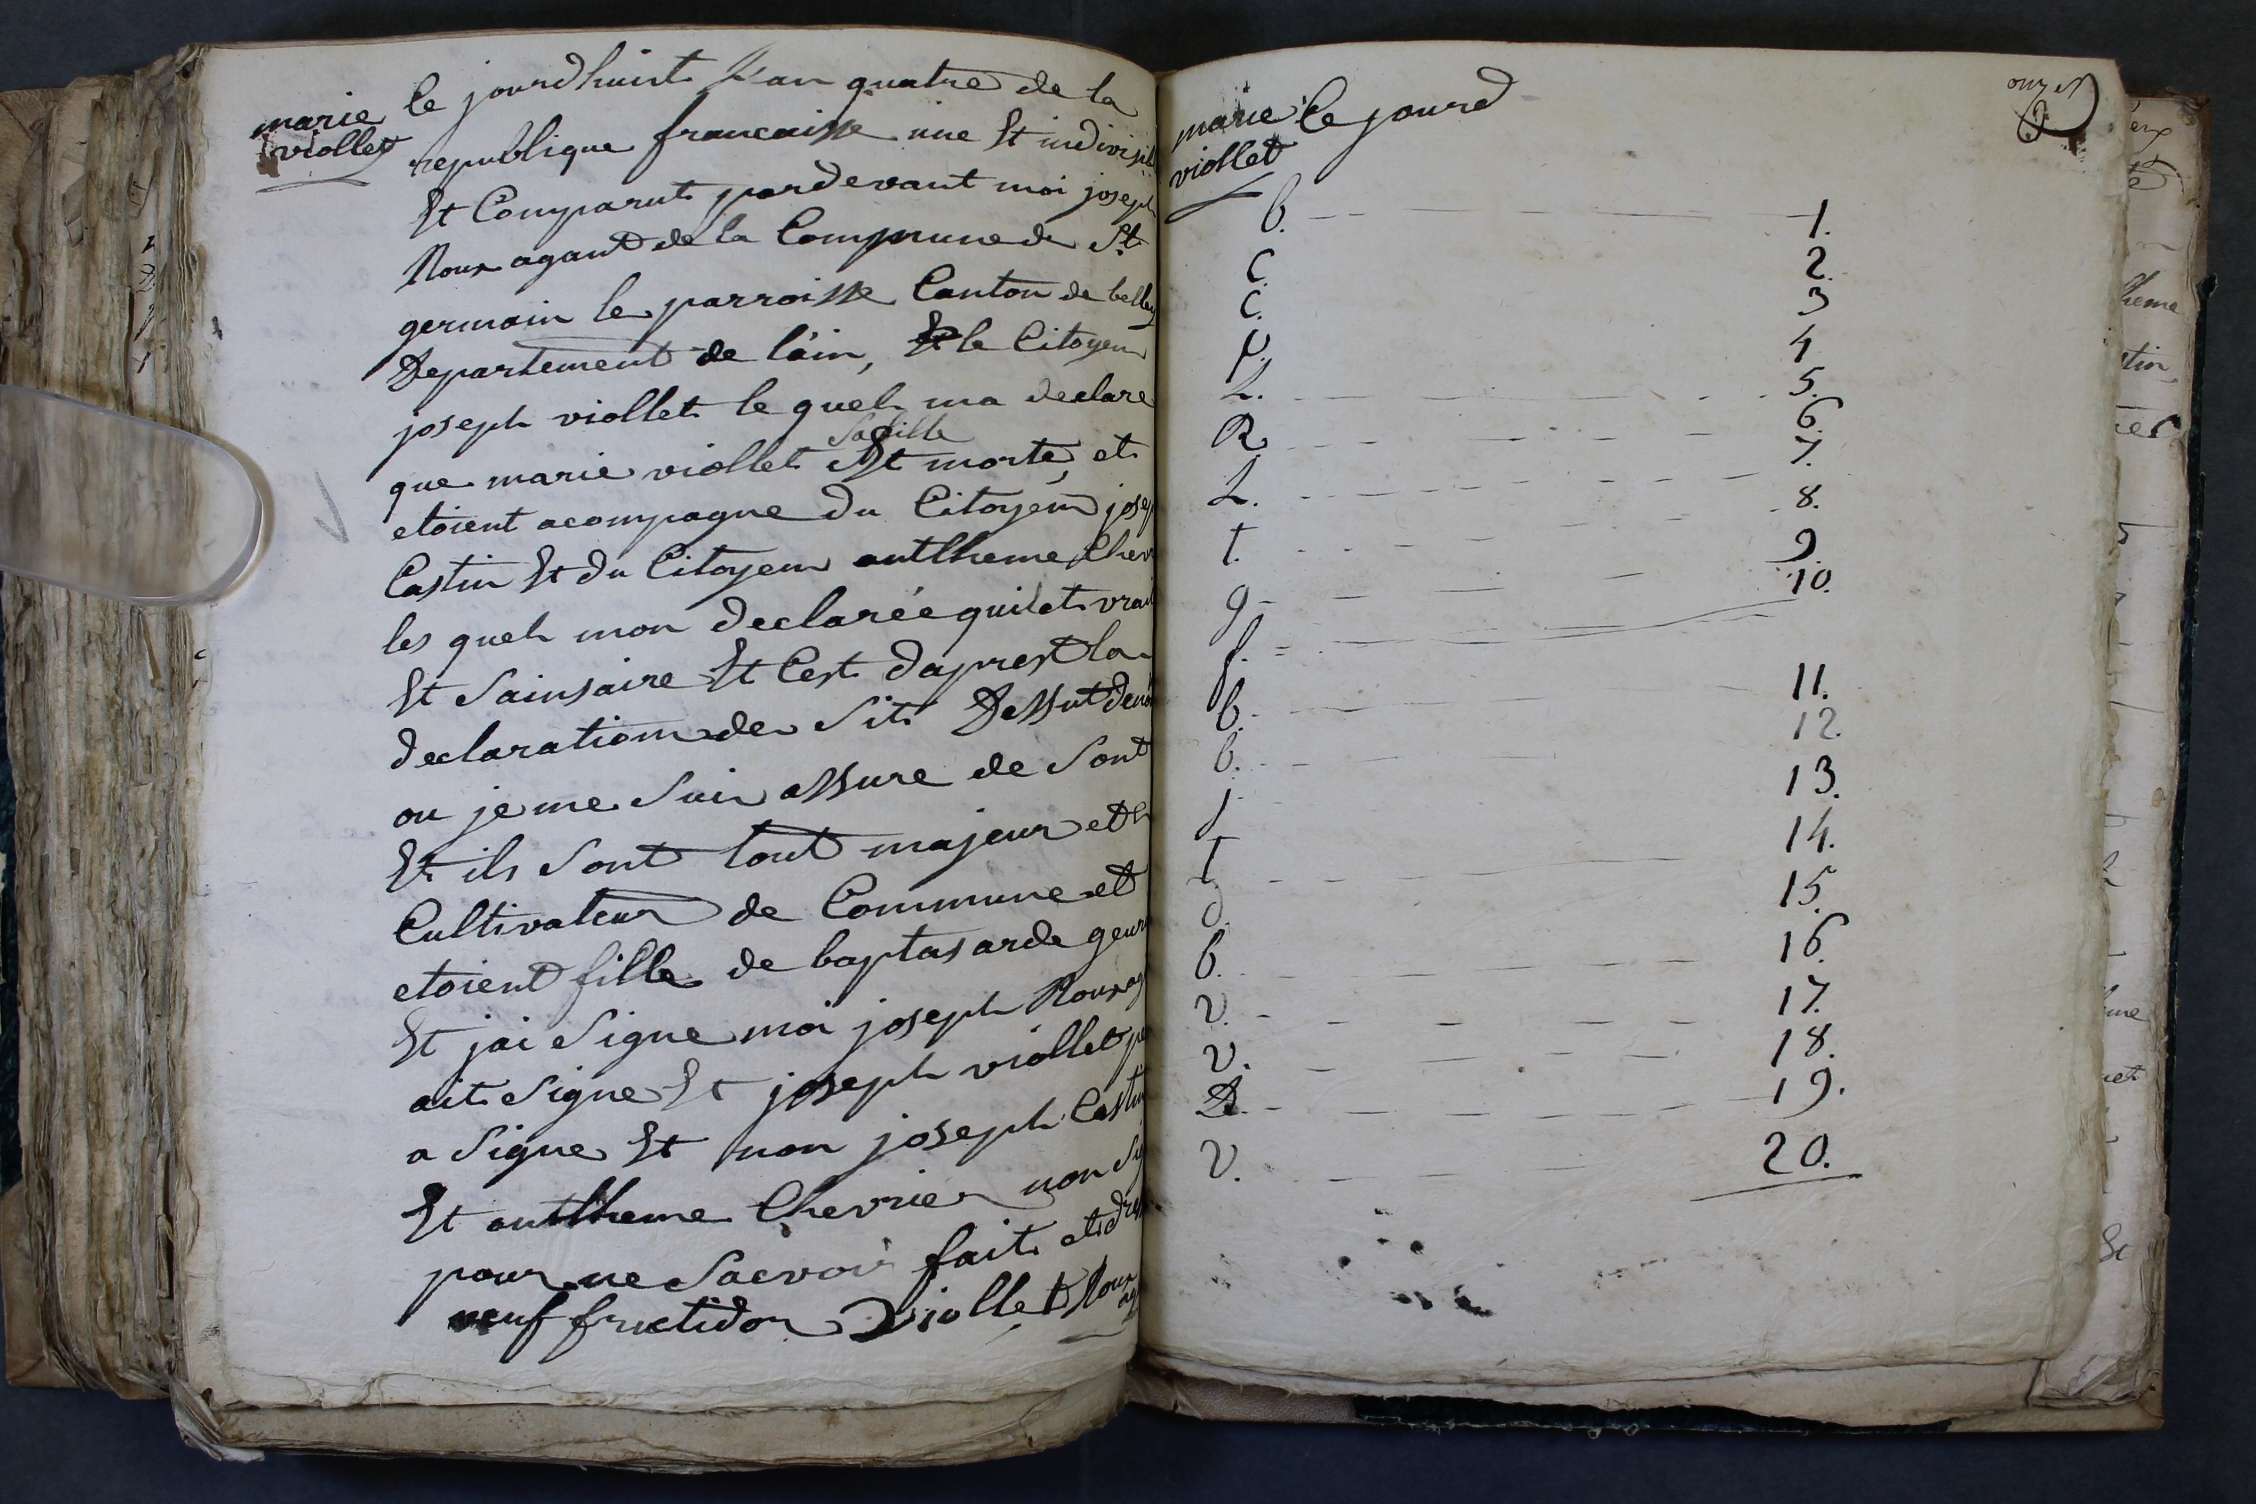 marie
viollet
le jourdhuit l'an quatre de la
republique francaisse une Et indivisi
Et Comparut pardevant moi joseph
Roux agant de la Commune de St
germain le parroisse Canton de belley
Departement de l'ain, Et le Citoyen
joseph viollet le quel ma declare
sa fille
que marie viollet Est morte, et
etoient acompagne du Citoyen josep
Castin Et du Citoyen antlheme Chevr
les quel mon declarée quil et vrai
Et Sainsaire Et Cest daprest la
declaration de Sit Dessut denom
ou je me Suis assure de Sont
Et ils Sont tout majeur et
Cultivateur de Commune et
etoient fille de baptasarde geur
Et jai Signe moi joseph Roux ag
ait Signe Et joseph viollet pe
a Signe Et non joseph Castin
Et antlheme Chevrier non Si
pour ne Saevoir fait et dres
neuf fructidor Viollet Roux
ag
marie le jourd
viollet
onz et
b. 1.
C. 2.
C. 3
p. 4
L. 5.
R 6.
L. 7.
t. 8.
g 9.
f. 10.
b. 11.
b. 12.
j 13.
T 14.
d. 15.
b. 16.
V. 17.
V. 18.
A. 19.
V. 20.